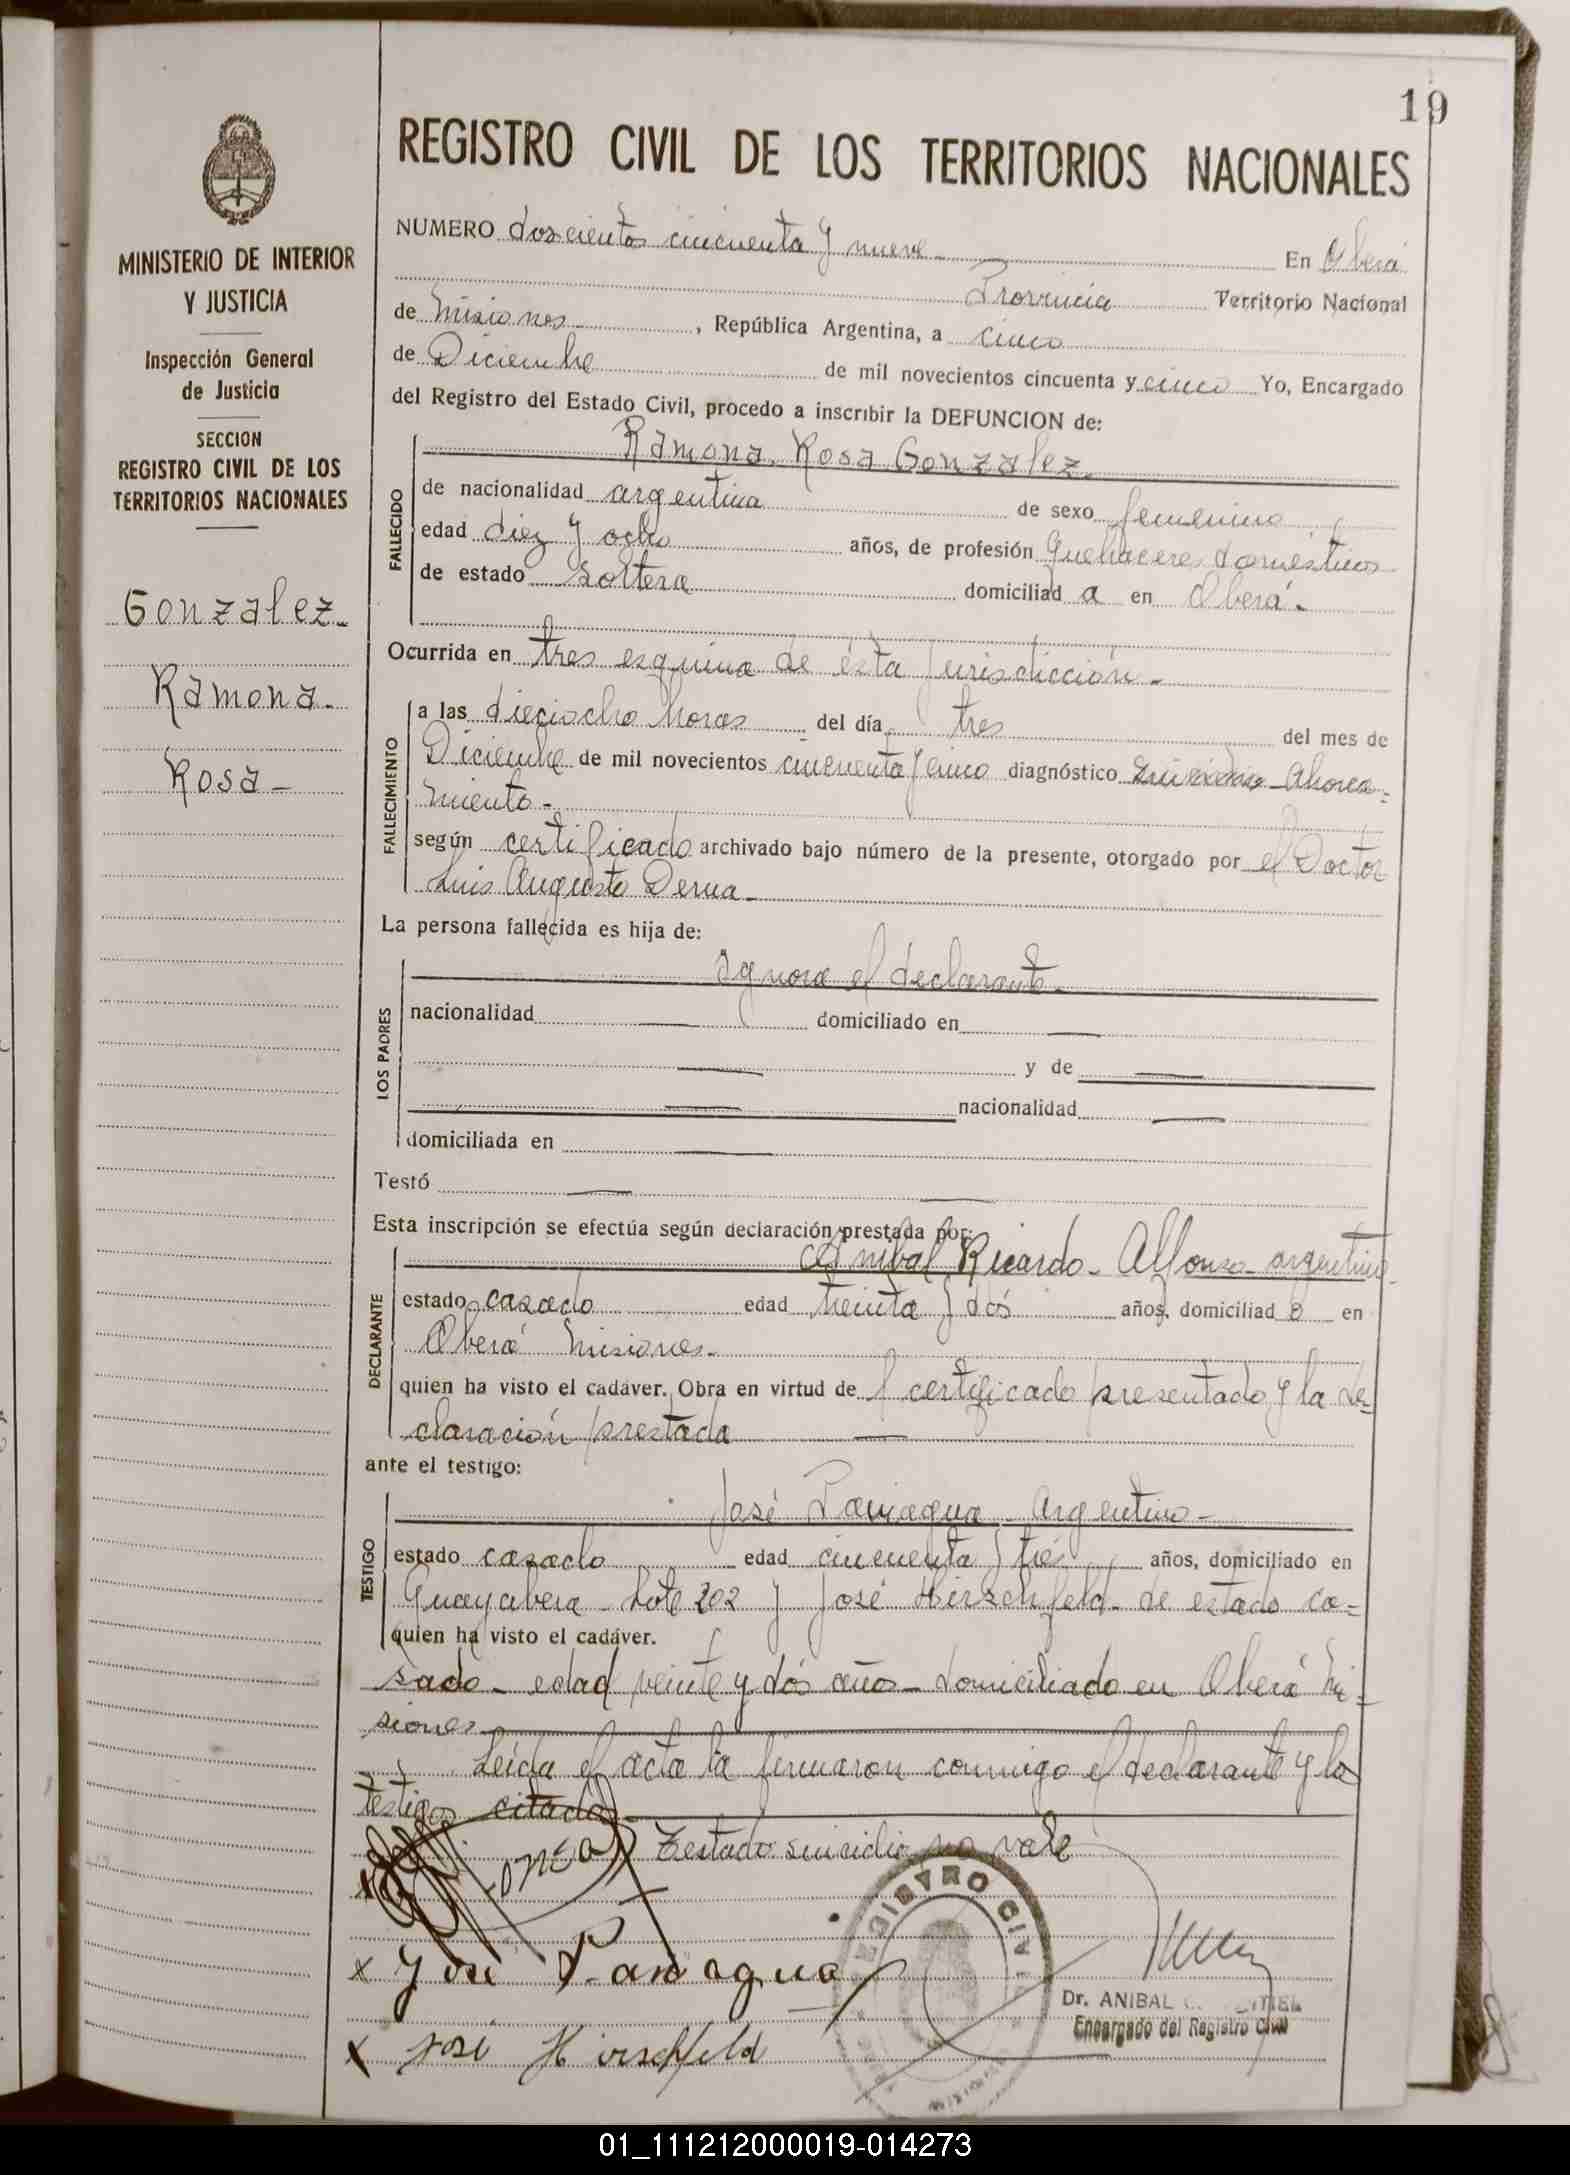 19
REGISTRO CIVIL DE LOS TERRITORIOS NACIONALES
MINISTERIO DE INTERIOR
Y JUSTICIA
Inspección General
de Justicia
SECCION
REGISTRO CIVIL DE LOS
TERRITORIOS NACIONALES
Gonzalez.
Ramona.
Rosa -
NUMERO doscientos cincuenta y nueve - En Oberá
Provincia Territorio Nacional
de Misiones , República Argentina, a cinco
de Diciembre de mil novecientos cincuenta y cinco Yo, Encargado
del Registro del Estado Civil, procedo a inscribir la DEFUNCION de:
Ramona Rosa Gonzalez.
FALLECIDO
de nacionalidad argentina de sexo femenino
edad diez y ocho años, de profesión Quehaceres domésticos
de estado soltera domiciliad a en Oberá -
Ocurrida en tres esquina de ésta jurisdicción -
FALLECIMIENTO
a las dieciocho horas del día tres del mes de
Diciembre de mil novecientos cincuenta y cinco diagnóstico suicidio - Ahorca=
miento -
según certificado archivado bajo número de la presente, otorgado por el Doctor
Luis Augusto Derna -
La persona fallecida es hija de:
LOS PADRES
Ignora el declarante -
nacionalidad — domiciliado en —
— y de —
— nacionalidad —
domiciliada en —
Testó — —
Esta inscripción se efectúa según declaración prestada por:
DECLARANTE
Anibal Ricardo - Alfonso - argentino
estado casado edad treinta y dós años, domiciliad o en
Oberá Misiones -
quien ha visto el cadáver. Obra en virtud de l certificado presentado y la de=
claración prestada —
ante el testigo:
TESTIGO
José Paniagua - Argentino -
estado casado edad cincuenta y tres años, domiciliado en
Guayabera - Lote 202 y José Hirschfeld - de estado ca=
quien ha visto el cadáver.
sado - edad veinte y dós años - domiciliado en Oberá Mi=
siones
Leída el acta la firmaron conmigo el declarante y lo
testigos citado
Testado: suicidio no vale
x José Paniagua
x José Hirschfeld
REGISTRO CIVIL
MISIONES
Dr. ANIBAL
Encargado del Registro Civil
01_111212000019-014273